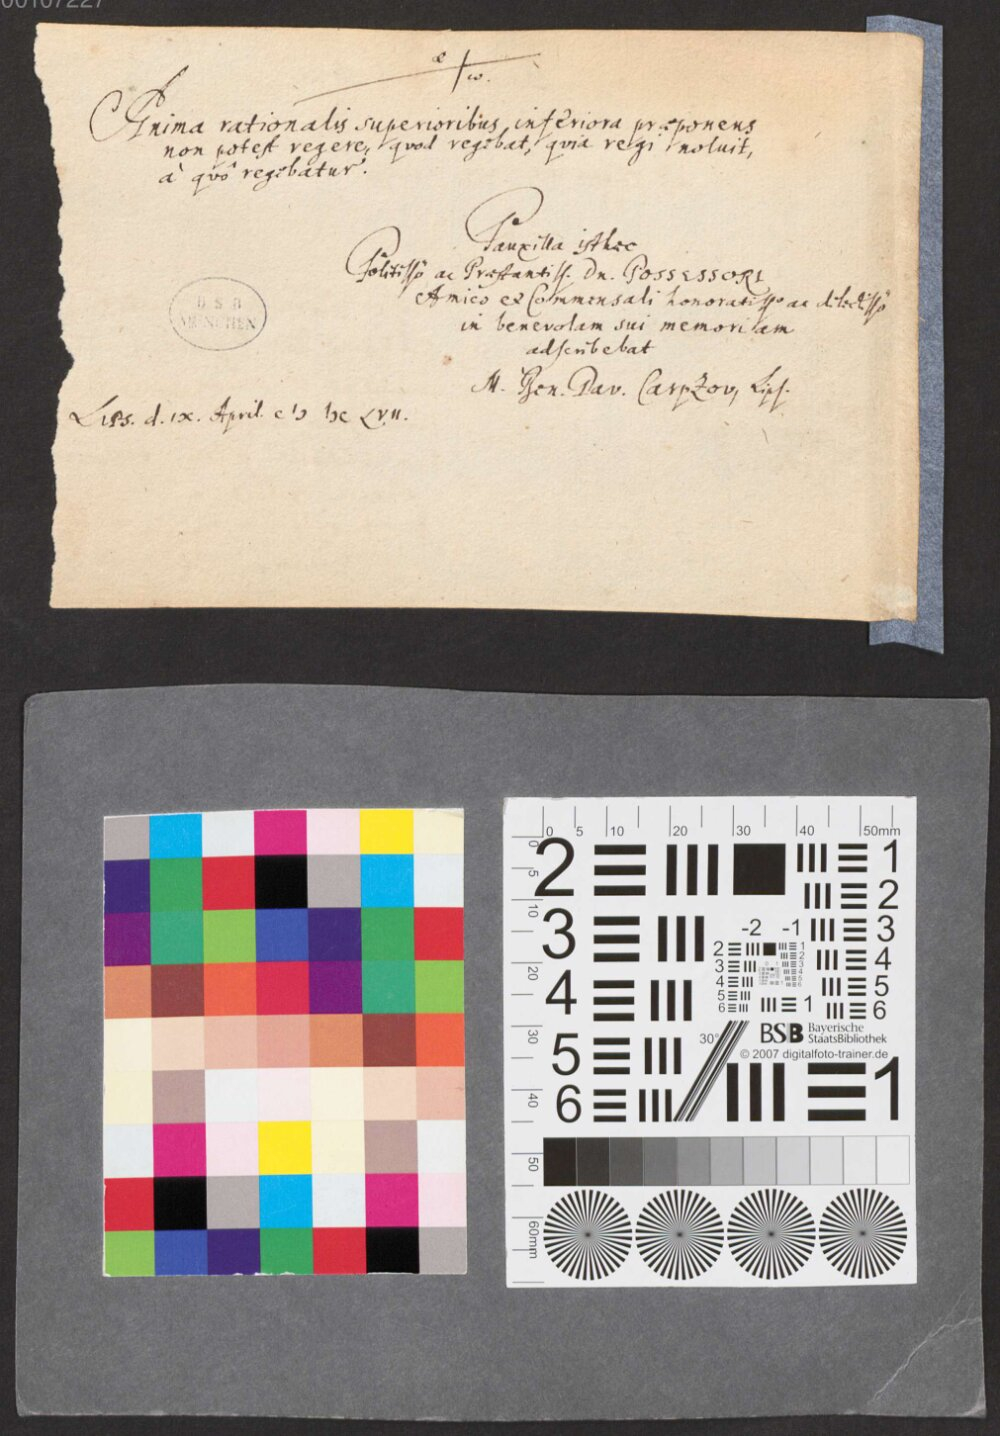 00107227
α ω.
Anima rationalis superioribus inferiora præponens
non potest regere, quod regebat, quia regi noluit,
à quô regebatur.
Pauxilla isthæc
Politissº ac Præstantiss. Dn. POSSESSORI
Amico et Commensali honoratissº ac dilectissº
in benevolam sui memoriam
adscribebat
M. Ben. Dav. Carpzov, Lips.
Lips. d. ıx. April. cIɔ Iɔc LVII.
BSB
MÜNCHEN
0 5 10 20 30 40 50mm
0 5 10 20 30 40 50 60mm
2 1
2
3 -2 -1 3
2 1
2
3 3
4 4 4
5 5 5
6 6 1 6
5 30° BSB Bayerische
StaatsBibliothek
© 2007 digitalfoto-trainer.de
6 1